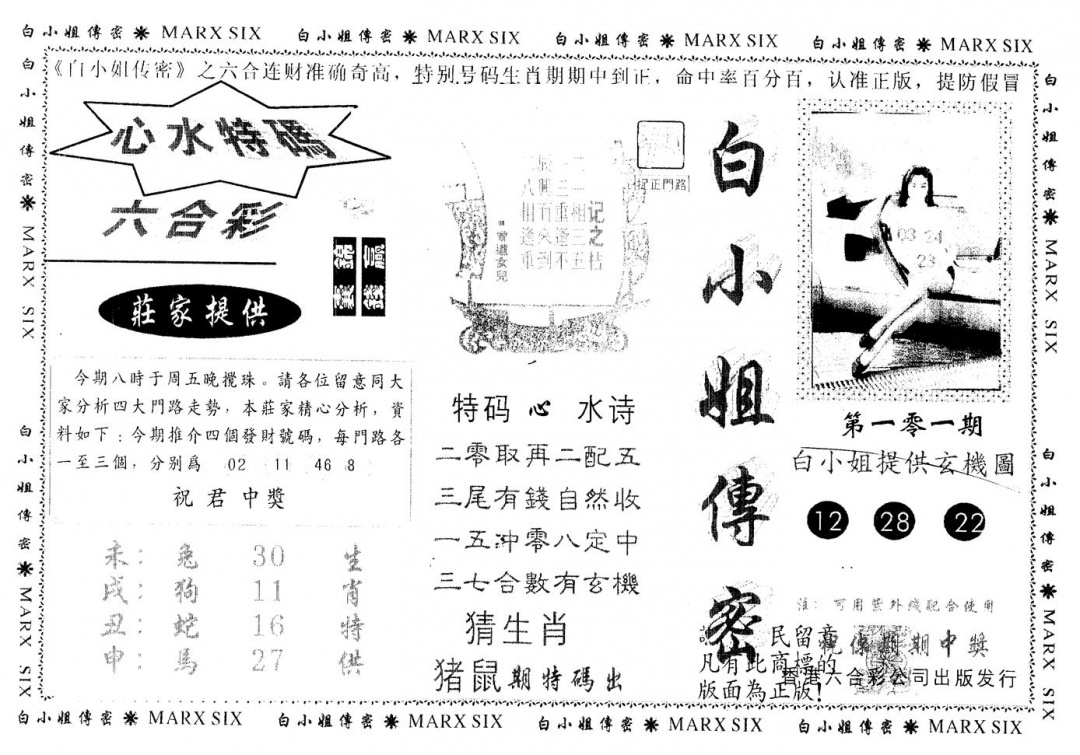 白小姐傳密 ❋ MARX SIX 白小姐傳密 ❋ MARX SIX 白小姐傳密 ❋ MARX SIX 白小姐傳密 ❋ MARX SIX
白小姐傳密 ❋ MARX SIX
白小姐傳密 ❋ MARX SIX
《白小姐传密》之六合连财准确奇高，特别号码生肖期期中到正，命中率百分百，认准正版，提防假冒
心水特碼
六合彩
莊家提供
今期八時于周五晚攪珠。請各位留意同大
家分析四大門路走勢，本莊家精心分析，資
料如下：今期推介四個發財號碼，每門路各
一至三個，分别爲 02 11 46 8
祝君中獎
未：兔 30 生
戌：狗 11 肖
丑：蛇 16 特
申：馬 27 供
正門路
记之
曾道女兒
特码心水诗
二零取再二配五
三尾有錢自然收
一五冲零八定中
三七合數有玄機
猜生肖
猪鼠期特碼出
白小姐傳密
民留意
凡有此商標的
版面為正版!
03 24
23
第一零一期
白小姐提供玄機圖
12 28 22
注：可用紫外线配合使用
祝你期期中獎
香港六合彩公司出版发行
白小姐傳密 ❋ MARX SIX
白小姐傳密 ❋ MARX SIX
白小姐傳密 ❋ MARX SIX 白小姐傳密 ❋ MARX SIX 白小姐傳密 ❋ MARX SIX 白小姐傳密 ❋ MARX SIX